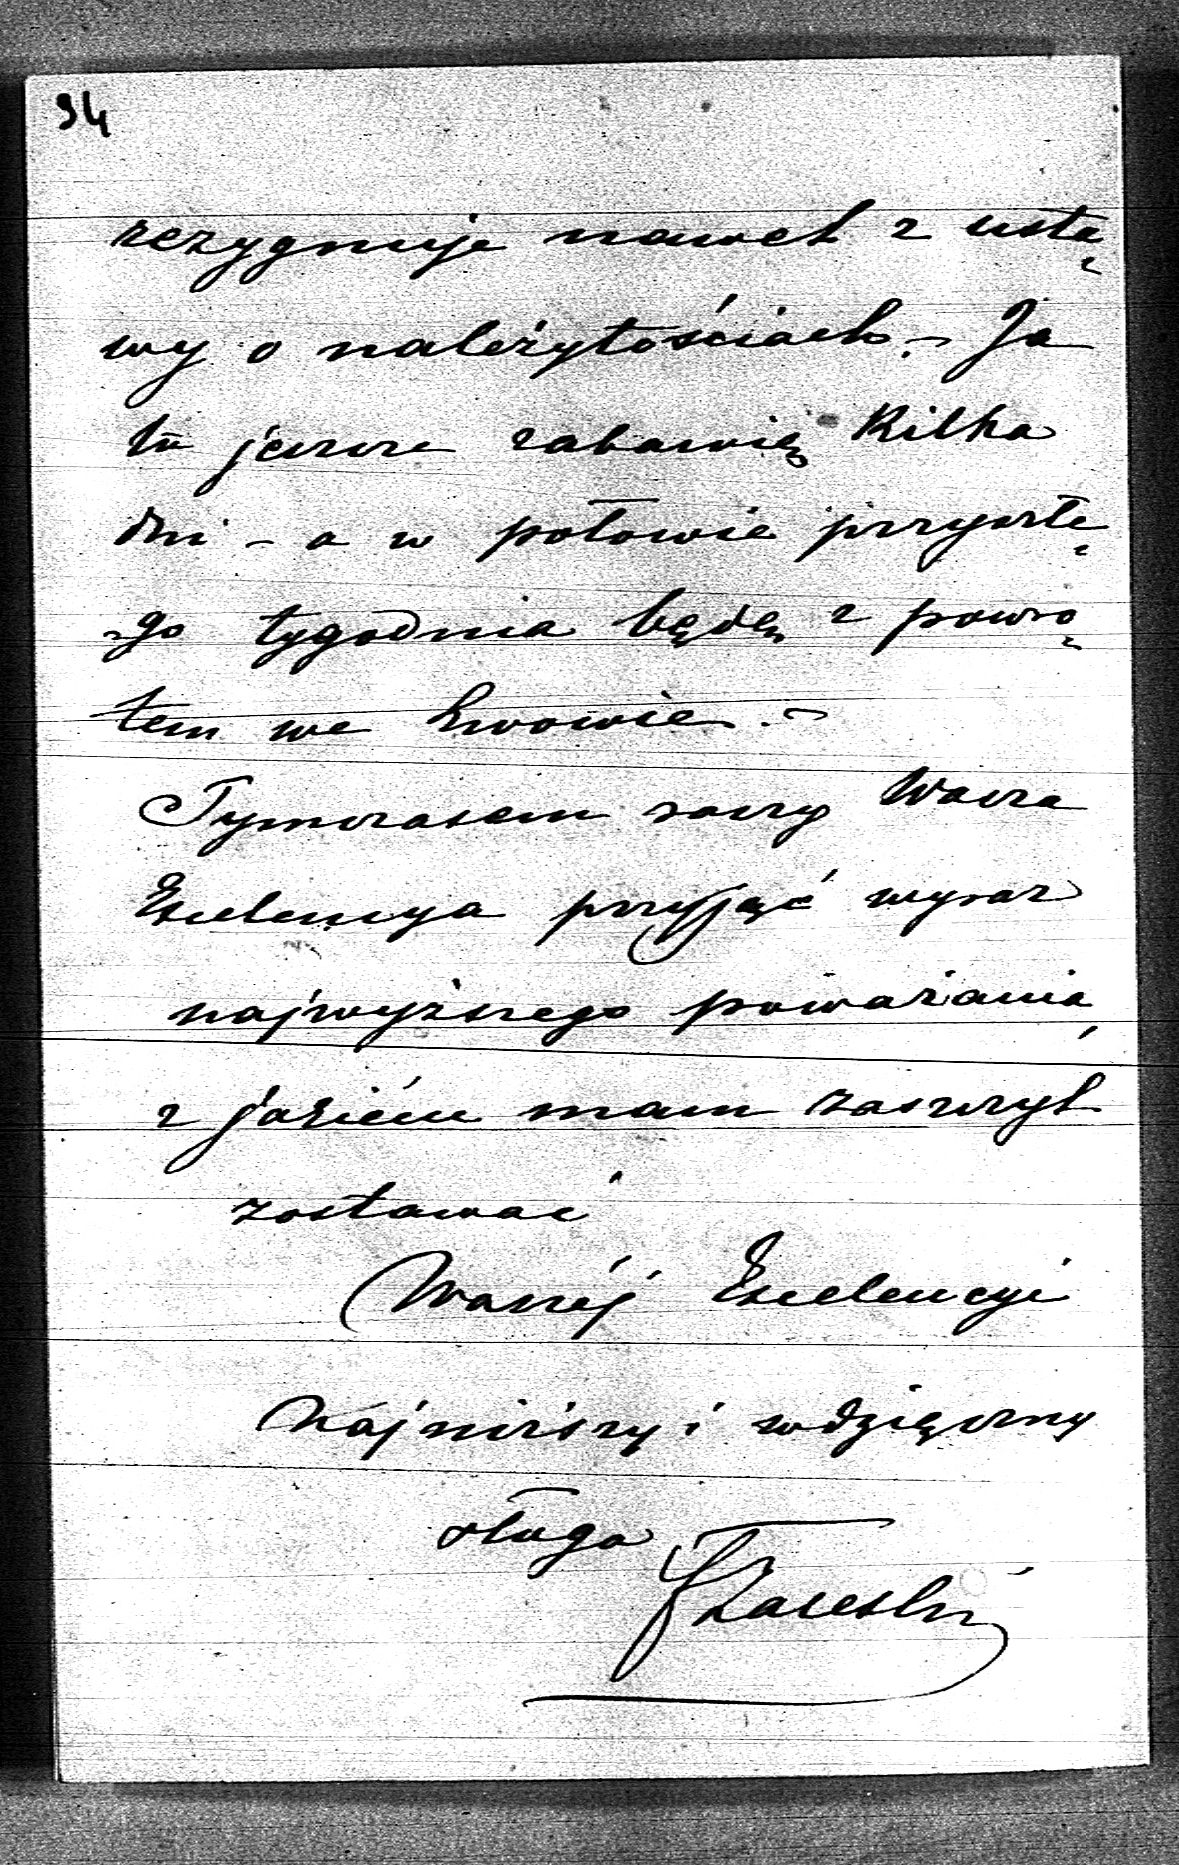 94
rezygnuje nawet z usta-
wy o należytościach. – Ja
tu jeszcze zabawię kilka
dni – a w połowie przyszłe-
-go tygodnia będę z powro-
tem we Lwowie. –
Tymczasem raczy Wasza
Excelencya przyjąć wyraz
najwyższego poważania,
z jakiém mam zaszczyt
zostawać
Waszéj Excelencyi
najniższy i wdzięczny
sługa